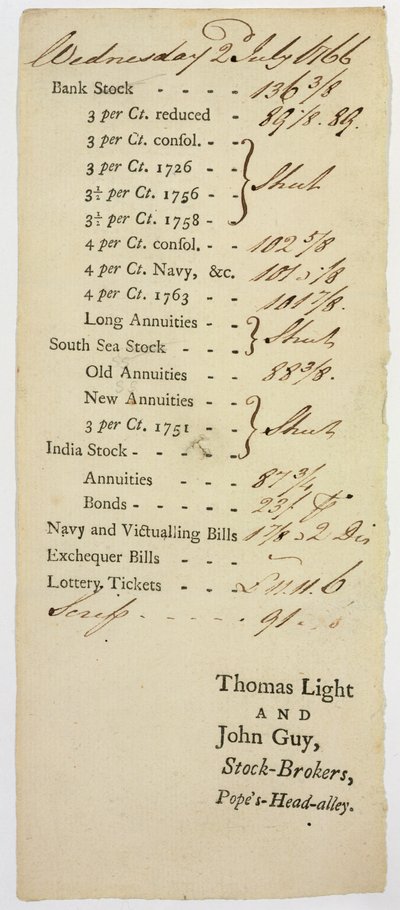 Wednesday 2d July 1766
Bank Stock - - - - 136 3/8
3 per Ct. reduced - 89 1/8. 89.
3 per Ct. conſol. - -
3 per Ct. 1726 - -
3½ per Ct. 1756 - - } Shut
3½ per Ct. 1758 -
4 per Ct. conſol. - - 102 5/8
4 per Ct. Navy, &c. 101
4 per Ct. 1763 - - 101 7/8.
Long Annuities - - } Shut
South Sea Stock - - -
Old Annuities - - 88 3/8.
New Annuities - -
3 per Ct. 1751 - - } Shut
India Stock - - - - -
Annuities - - - 87 3/4
Bonds - - - - - 23/ p
Navy and Victualling Bills 1 7/8 a 2 Dis
Exchequer Bills - - -
Lottery Tickets - - - £11.11.6
Scrip - - - - - 91
Thomas Light
AND
John Guy,
Stock-Brokers,
Pope's-Head-alley.